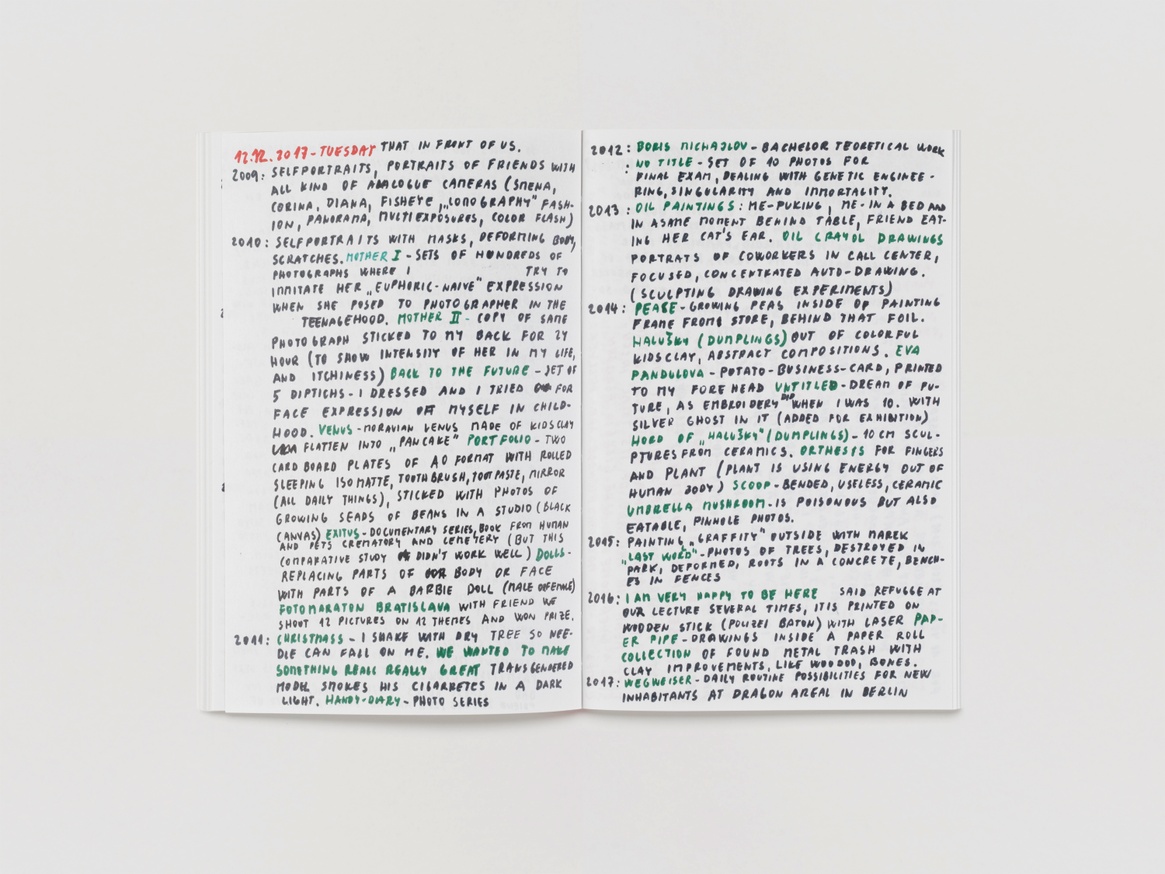 12.12.2017-TUESDAY THAT IN FRONT OF US.
2009: SELFPORTRAITS, PORTRAITS OF FRIENDS WITH
ALL KIND OF ANALOGUE CAMERAS (SMENA,
CORINA, DIANA, FISHEYE „LOMOGRAPHY" FASH-
ION, PANORAMA, MULTIEXPOSURES, COLOR FLASH)
2010: SELFPORTRAITS WITH MASKS, DEFORMING BODY,
SCRATCHES. MOTHER I - SETS OF HUNDREDS OF
PHOTOGRAPHS WHERE I TRY TO
IMMITATE HER „EUPHORIC-NAIVE" EXPRESSION
WHEN SHE POSED TO PHOTOGRAPHER IN THE
TEENAGEHOOD. MOTHER II - COPY OF SAME
PHOTOGRAPH STICKED TO MY BACK FOR 24
HOUR (TO SHOW INTENSITY OF HER IN MY LIFE,
AND ITCHINESS) BACK TO THE FUTURE - SET OF
5 DIPTICHS - I DRESSED AND I TRIED FOR
FACE EXPRESSION OF MYSELF IN CHILD-
HOOD. VENUS - MORAVIAN VENUS MADE OF KIDSCLAY
FLATTEN INTO „PANCAKE" PORTFOLIO - TWO
CARDBOARD PLATES OF A0 FORMAT WITH ROLLED
SLEEPING ISOMATTE, TOOTHBRUSH, TOOTPASTE, MIRROR
(ALL DAILY THINGS), STICKED WITH PHOTOS OF
GROWING SEADS OF BEANS IN A STUDIO (BLACK
CANVAS) EXITUS - DOCUMENTARY SERIES, BOOK FROM HUMAN
AND PETS CREMATORY AND CEMETERY (BUT THIS
COMPARATIVE STUDY DIDN'T WORK WELL) DOLLS -
REPLACING PARTS OF BODY OR FACE
WITH PARTS OF A BARBIE DOLL (MALE OR FEMALE)
FOTOMARATON BRATISLAVA WITH FRIEND WE
SHOOT 12 PICTURES ON 12 THEMES AND WON PRIZE.
2011: CHRISTMASS - I SHAKE WITH DRY TREE SO NEE-
DLE CAN FALL ON ME. WE WANTED TO MAKE
SOMETHING REALL REALLY GREAT TRANSGENDERED
MODEL SMOKES HIS CIGARRETES IN A DARK
LIGHT. HANDY-DIARY - PHOTO SERIES
2012: BORIS MICHAJLOV - BACHELOR TEORETICAL WORK
NO TITLE - SET OF 10 PHOTOS FOR
FINAL EXAM, DEALING WITH GENETIC ENGINEE-
RING, SINGULARITY AND IMMORTALITY.
2013: OIL PAINTINGS: ME-PUKING, ME-IN A BED AND
IN A SAME MOMENT BEHIND TABLE, FRIEND EAT-
ING HER CAT'S EAR. OIL CRAYOL DRAWINGS
PORTRATS OF COWORKERS IN CALL CENTER,
FOCUSED, CONCENTRATED AUTO-DRAWING.
(SCULPTING DRAWING EXPERIMENTS)
2014: PEACE - GROWING PEAS INSIDE OF PAINTING
FRAME FROM STORE, BEHIND THAT FOIL.
HALUŠKY (DUMPLINGS) OUT OF COLORFUL
KIDSCLAY, ABSTRACT COMPOSITIONS. EVA
PANDULOVA - POTATO-BUSINESS-CARD, PRINTED
TO MY FOREHEAD UNTITLED - DREAM OF FU-
TURE, AS EMBROIDERY DID WHEN I WAS 10. WITH
SILVER GHOST IN IT (ADDED FOR EXHIBITION)
HORD OF „HALUŠKY" (DUMPLINGS) - 10 CM SCUL-
PTURES FROM CERAMICS. ORTHESIS FOR FINGERS
AND PLANT (PLANT IS USING ENERGY OUT OF
HUMAN BODY) SCOOP - BENDED, USELESS, CERAMIC
UMBRELLA MUSHROOM - IS POISONOUS BUT ALSO
EATABLE, PINHOLE PHOTOS.
2015: PAINTING „GRAFFITY" OUTSIDE WITH MAREK
„LAST WORD" - PHOTOS OF TREES, DESTROYED IN
PARK, DEFORMED, ROOTS IN A CONCRETE, BENCH-
ES IN FENCES
2016: I AM VERY HAPPY TO BE HERE SAID REFUGGE AT
OUR LECTURE SEVERAL TIMES, IT IS PRINTED ON
WOODEN STICK (POLIZEI BATON) WITH LASER PAP-
ER PIPE - DRAWINGS INSIDE A PAPER ROLL
COLLECTION OF FOUND METAL TRASH WITH
CLAY IMPROVEMENTS, LIKE WOODOO, BONES.
2017: WEGWEISER - DAILY ROUTINE POSSIBILITIES FOR NEW
INHABITANTS AT DRAGON AREAL IN BERLIN